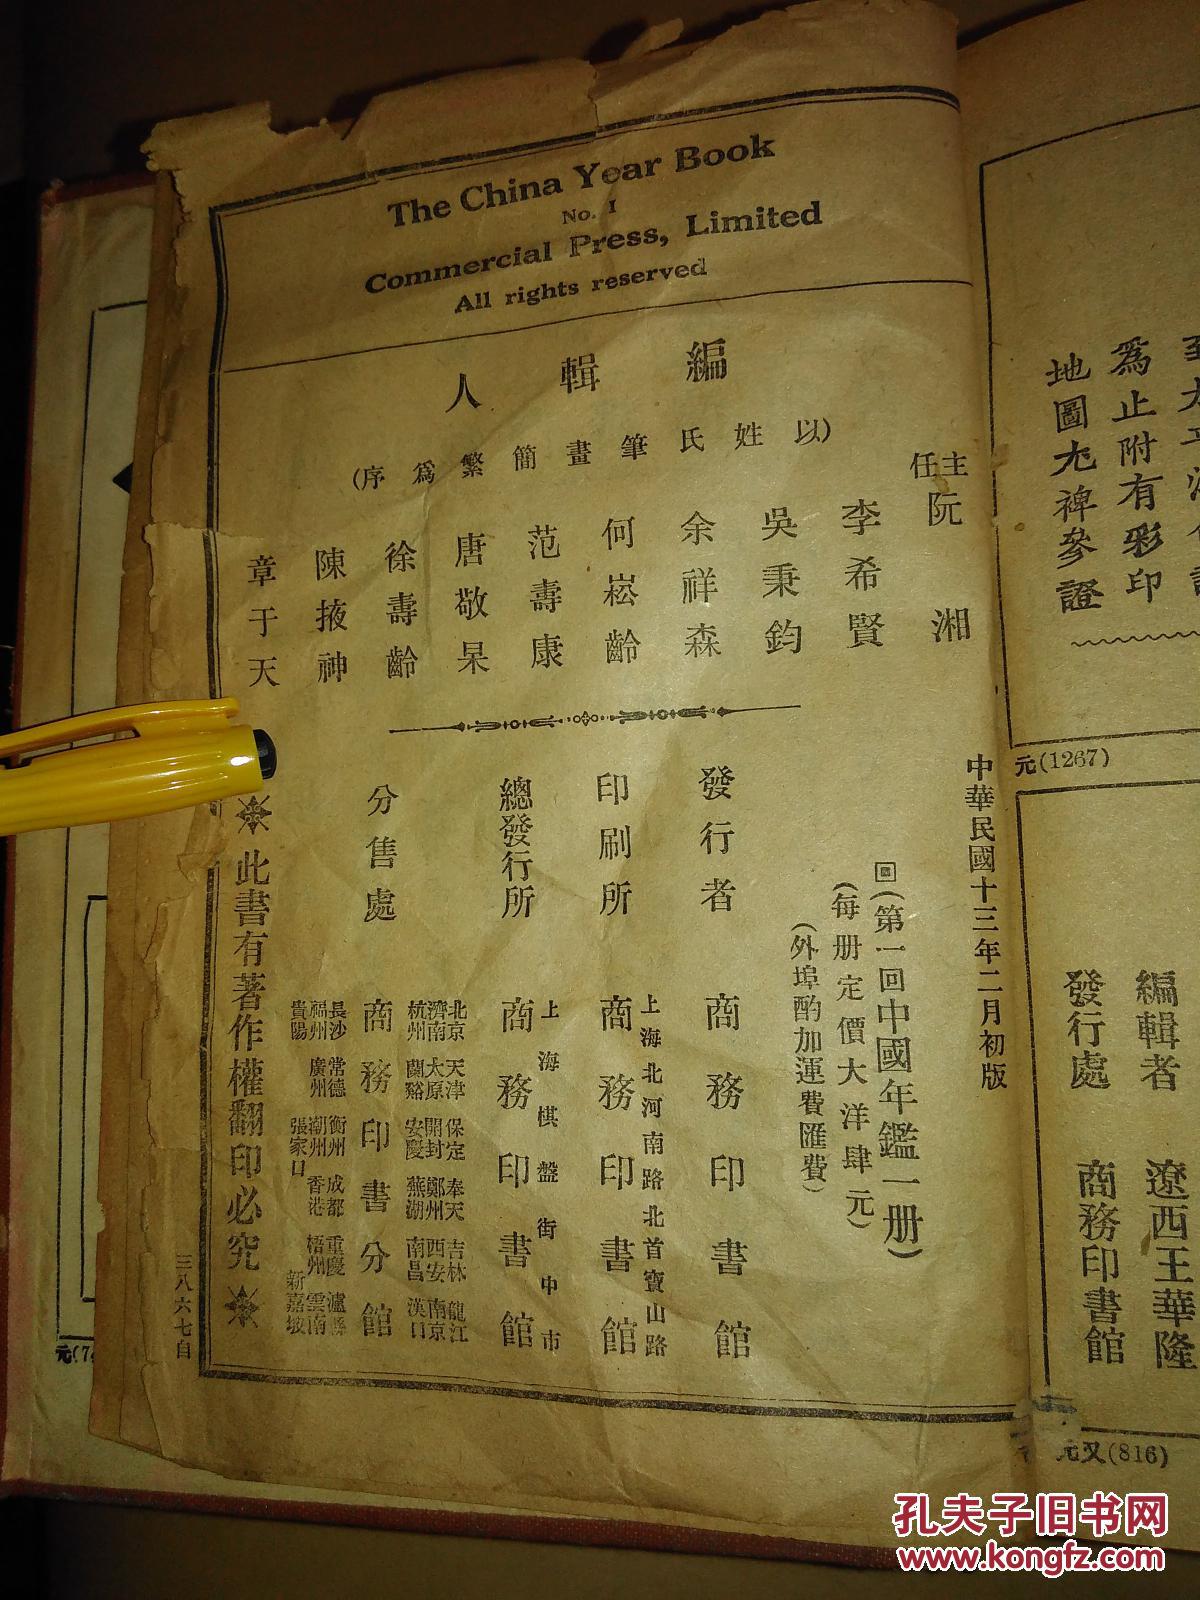 The China Year Book
No. 1
Commercial Press, Limited
All rights reserved
編輯人
(以姓氏筆畫簡繁爲序)
主任
阮湘
李希賢
吳秉鈞
余祥森
何崧齡
范壽康
唐敬杲
徐壽齡
陳掖神
章于天
中華民國十三年二月初版
回(第一回中國年鑑一册)
(每册定價大洋肆元)
(外埠酌加運費匯費)
發行者 商務印書館
上海北河南路北首寶山路
印刷所 商務印書館
上海棋盤街中市
總發行所 商務印書館
北京 天津 保定 奉天 吉林 龍江
濟南 太原 開封 鄭州 西安 南京
杭州 蘭谿 安慶 蕪湖 南昌 漢口
分售處 商務印書分館
長沙 常德 衡州 成都 重慶 瀘縣
福州 廣州 潮州 香港 梧州 雲南
貴陽 張家口 新嘉坡
此書有著作權翻印必究
三八六七自
爲止附有彩印
地圖尤裨參證
元(1267)
編輯者 遼西王華隆
發行處 商務印書館
元又(816)
元(7
孔夫子旧书网
www.kongfz.com